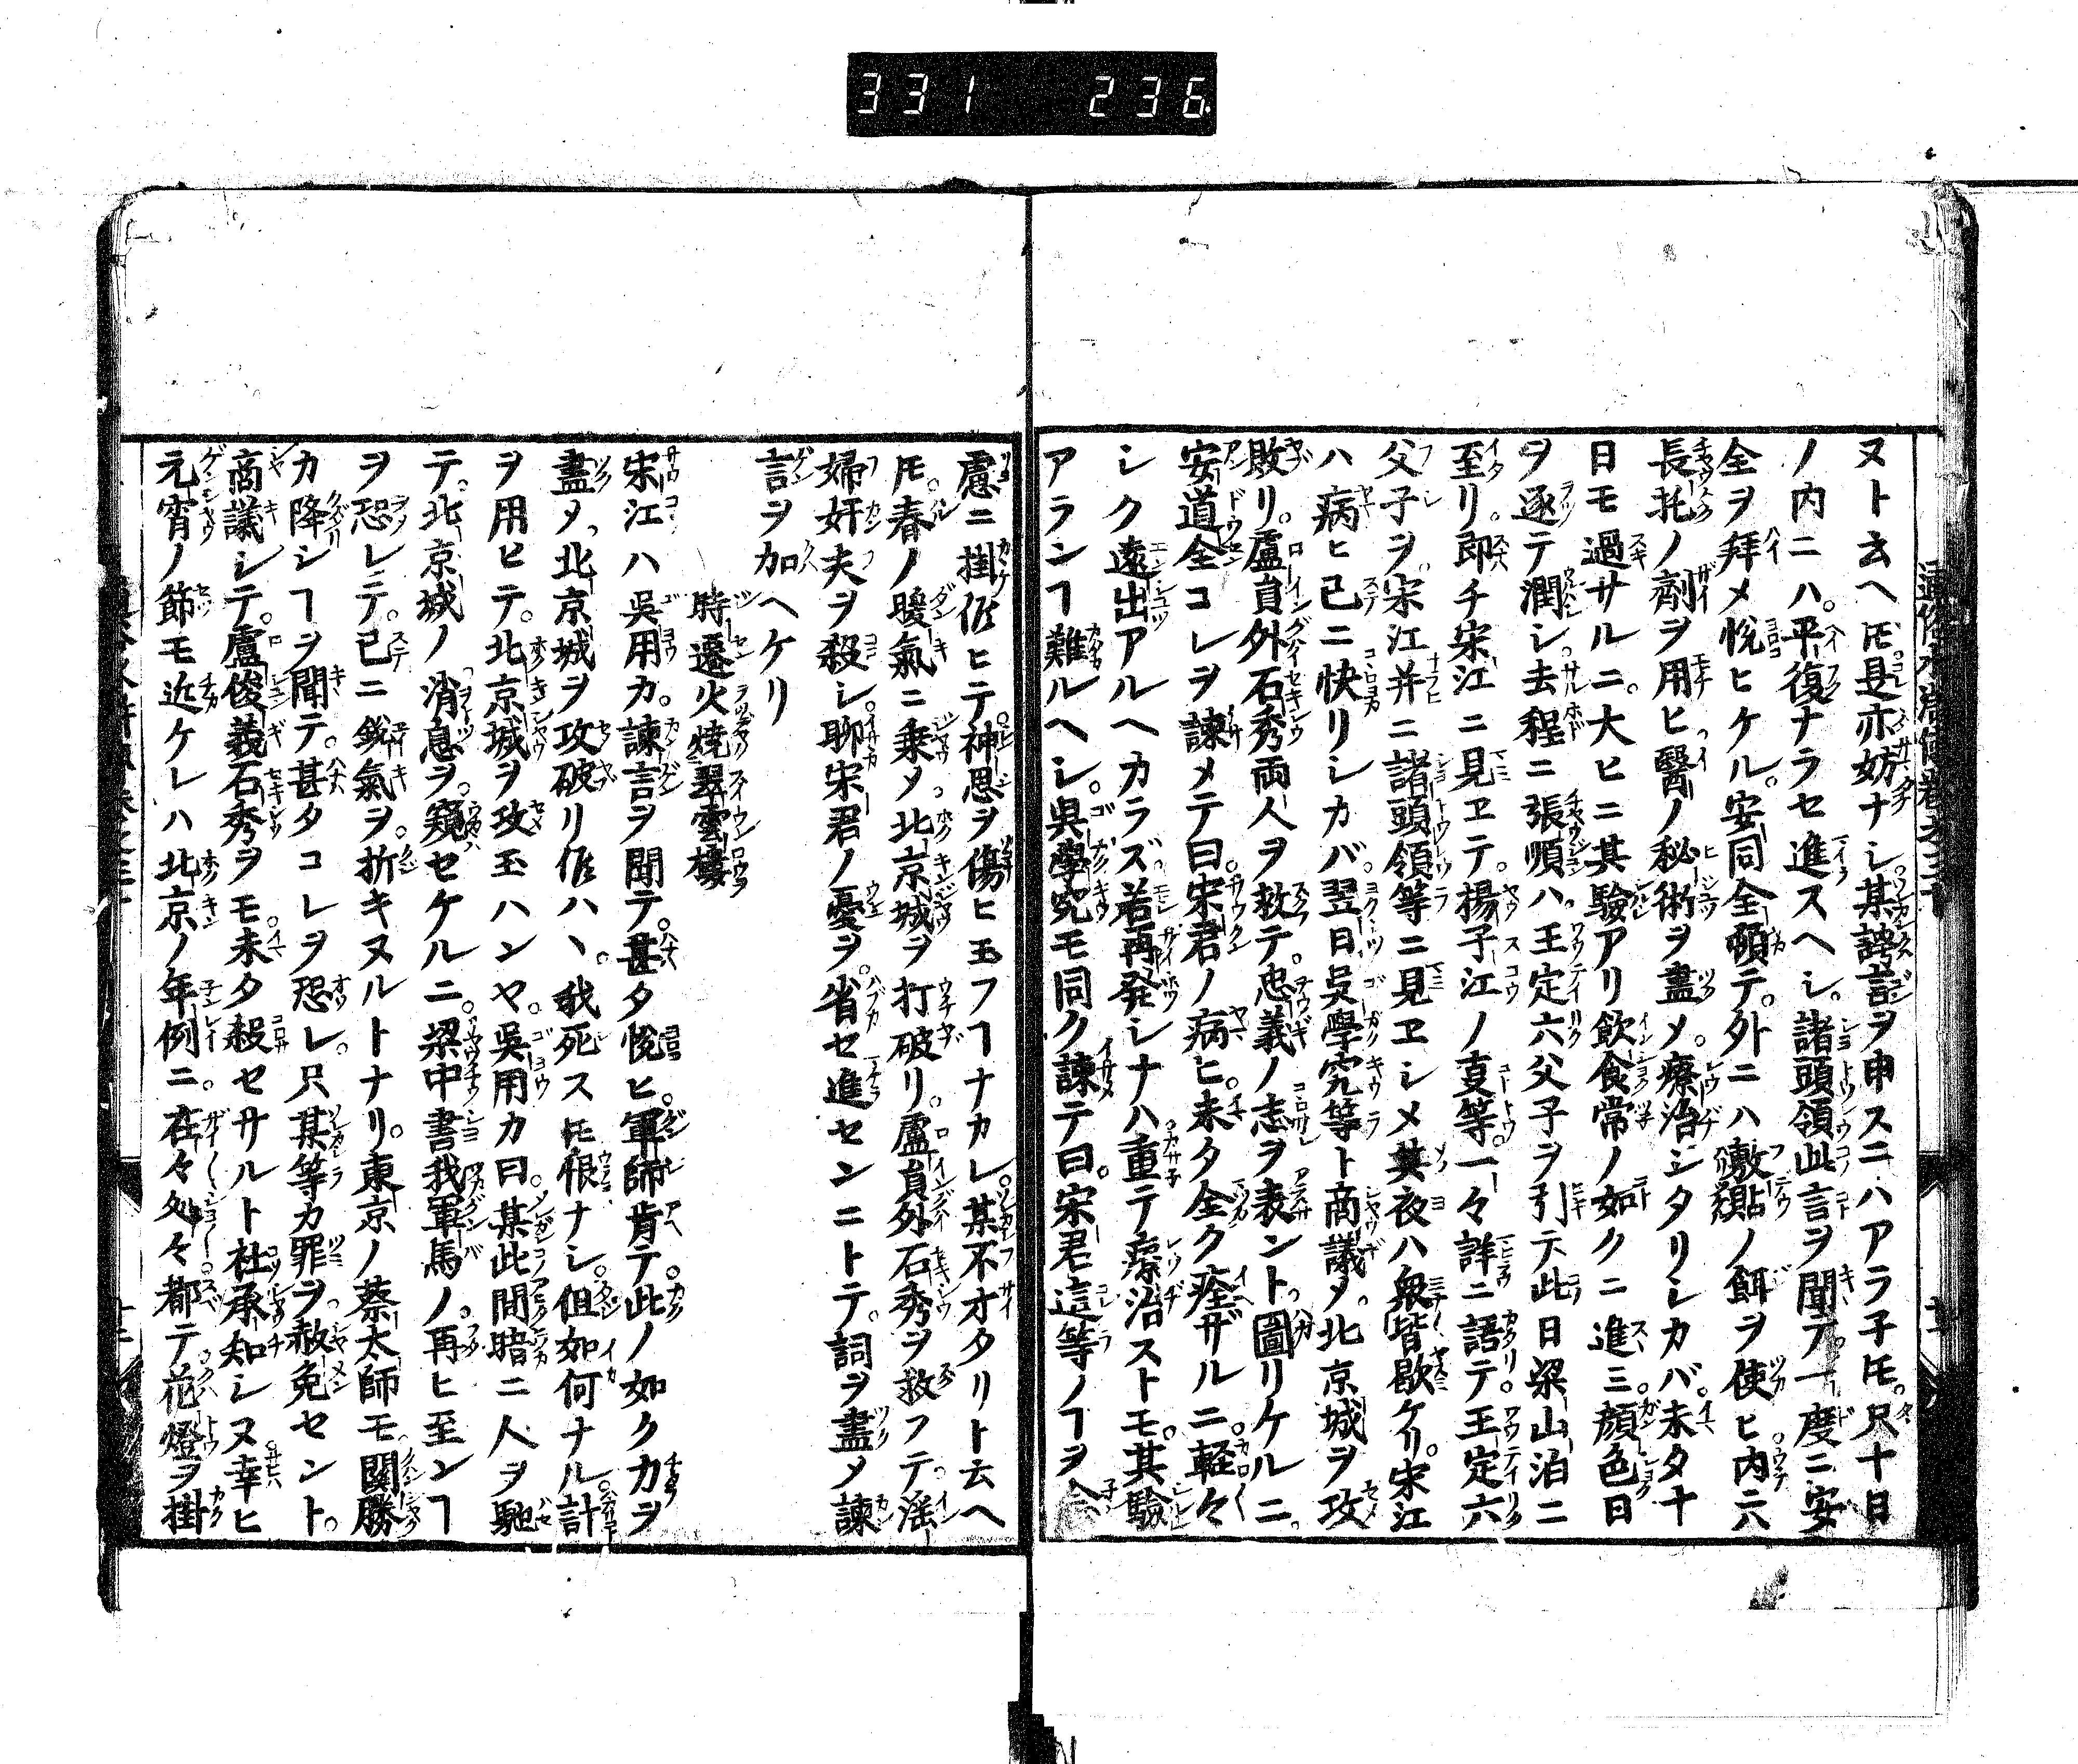 331 236
ヌト云ヘ𪜈。是亦妨ナシ。某誇言ヲ申スニハアラ子𪜈。只十日
ノ内ニハ。平復ナラセ進スヘシ。諸頭領此言ヲ聞テ。一度ニ安
全ヲ拜メ悅ヒケル。安同全頓テ。外ニハ敷貼ノ餌ヲ使ヒ内ニ六
長托ノ劑ヲ用ヒ醫ノ秘術ヲ盡メ。療治シタリシカバ。未タ十
日モ過サルニ。大ヒニ其驗アリ飲食常ノ如クニ進ミ。顔色日
ヲ逐テ潤シ。去程ニ張順ハ。王定六父子ヲ引テ此日梁山泊ニ
至リ。即チ宋江ニ見ヱテ。揚子江ノ叓等。一々詳ニ語テ。王定六
父子ヲ。宋江并ニ諸頭領等ニ見ヱシメ其夜ハ衆皆歇ケリ。宋江
ハ病ヒ已ニ快リシカバ。翌日吳學究等ト商議メ。北京城ヲ攻
敗リ。盧員外石秀両人ヲ救テ。忠義ノ志ヲ表ント圖リケルニ。
安道全コレヲ諫メテ曰。宋君ノ病ヒ。未タ全ク痊ザルニ。軽々
シク遠出アルヘカラズ。若再発シナハ重テ療治ストモ。其驗
アランヿ難ルヘシ。吳學究モ同ク諫テ曰。宋君這等ノヿヲ
慮ニ掛佢ヒテ。神思ヲ傷ヒ玉フヿナカレ。某不才タリト云ヘ
𪜈。春ノ暖氣ニ乗メ。北京城ヲ打破リ。盧員外石秀ヲ救フテ。滛
婦奸夫ヲ殺シ。聊宋君ノ憂ヲ。省セ進センニトテ。詞ヲ盡メ諫
言ヲ加ヘケリ
時遷火燒翠雲樓
宋江ハ吳用カ。諫言ヲ聞テ。甚タ悅ヒ。軍師肯テ。此ノ如ク力ヲ
盡メ。北京城ヲ攻破リ佢ハヽ。我死ス𪜈恨ナシ。但如何ナル計
ヲ用ヒテ。北京城ヲ攻玉ハンヤ。吳用カ曰。某此間暗ニ人ヲ馳
テ。北京城ノ消息ヲ。窺セケルニ。梁中書我軍馬ノ。再ヒ至ンヿ
ヲ恐レテ。已ニ銳氣ヲ。折キヌルトナリ。東京ノ蔡太師モ關勝
カ降シヿヲ聞テ。甚タコレヲ恐レ。只某等カ罪ヲ。赦免セント。
商議シテ。盧俊義石秀ヲモ。未タ殺セサルト社承知シヌ幸ヒ
元宵ノ節モ近ケレハ北京ノ年例ニ。在々処々都テ花燈ヲ掛